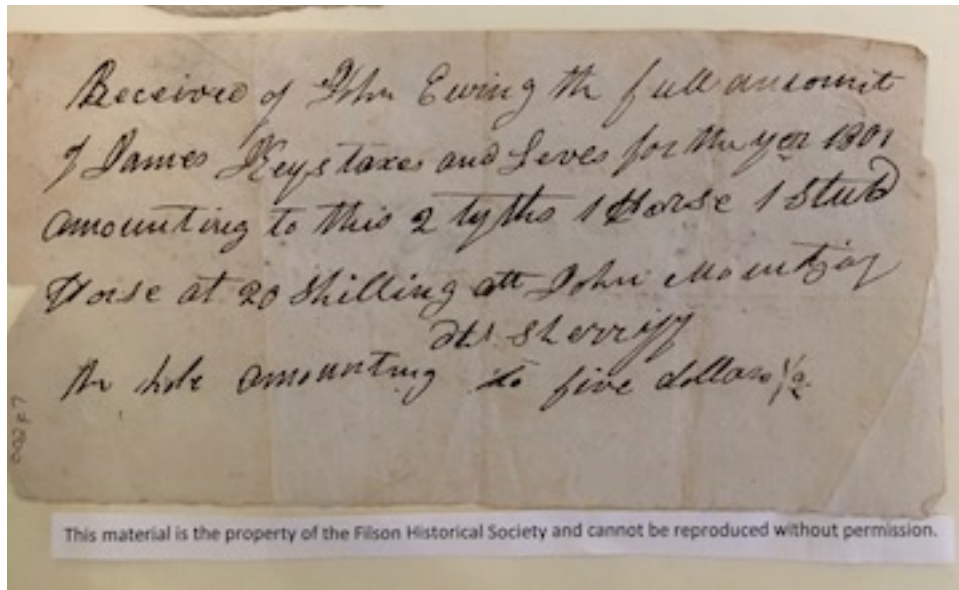 Received of John Ewing the full amount
of James Keys taxes and Leves for the yer 1801
amounting to this 2 tyths 1 Horse 1 Stud
Horse at 20 Shilling att John Mountjoy
Sherriff
the hole amounting to five dollars 1/2
This material is the property of the Filson Historical Society and cannot be reproduced without permission.